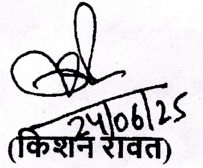 24/06/25
(किशन रावत)